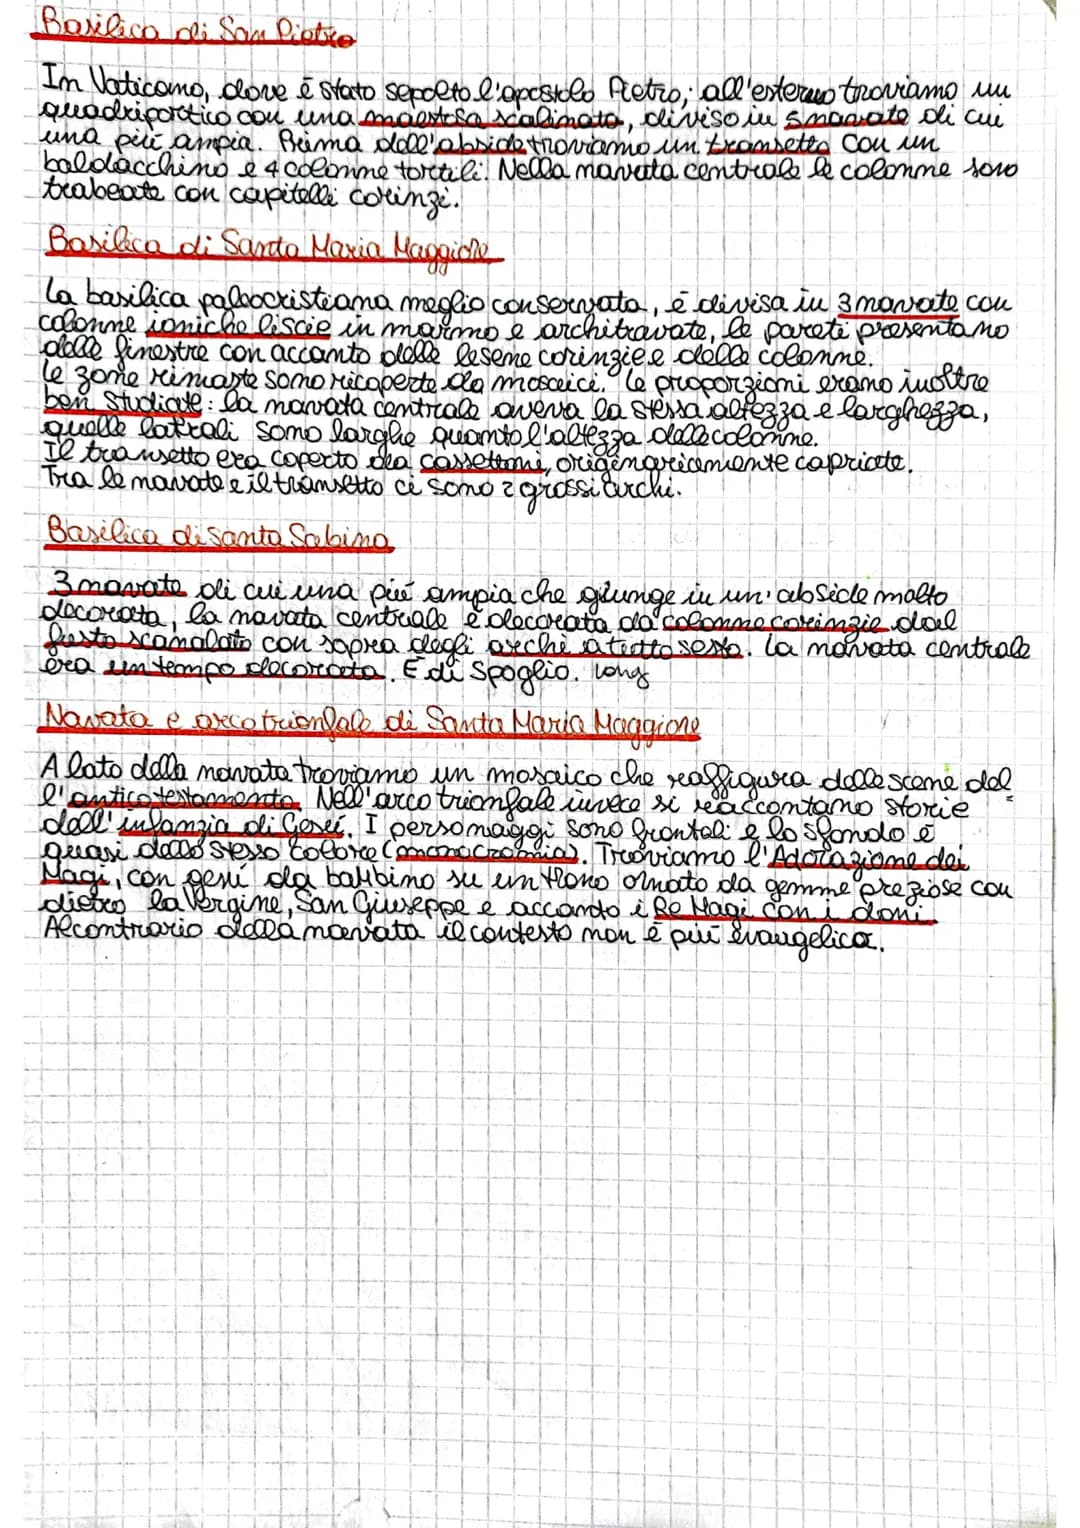 Basilica di San Pietro
In Vaticano, dove è stato sepolto l'apostolo Pietro; all'esterno troviamo un
quadriportico con una maestosa scalinata, diviso in 5 navate di cui
una più ampia. Prima dell'abside troviamo un transetto con un
baldacchino e 4 colonne tortili. Nella navata centrale le colonne sono
trabeate con capitelli corinzi.
Basilica di Santa Maria Maggiore
La basilica paleocristiana meglio conservata, è divisa in 3 navate con
colonne ioniche liscie in marmo e architravate, le pareti presentano
delle finestre con accanto delle lesene corinzie e delle colonne.
Le zone rimaste sono ricoperte da mosaici. Le proporzioni erano inoltre
ben studiate: la navata centrale aveva la stessa altezza e larghezza,
quelle laterali sono larghe quanto l'altezza delle colonne.
Il transetto era coperto da cassettoni, originariamente capriate.
Tra le navate e il transetto ci sono 2 grossi archi.
Basilica di Santa Sabina
3 navate di cui una più ampia che giunge in un'abside molto
decorata, la navata centrale è decorata da colonne corinzie dal
fusto scanalato con sopra degli archi a tutto sesto. La navata centrale
era un tempo decorata. È di spoglio.
Navata e arco trionfale di Santa Maria Maggiore
A lato della navata troviamo un mosaico che raffigura delle scene del
l'antico testamento. Nell'arco trionfale invece si raccontano storie
dell'infanzia di Gesù. I personaggi sono frontali e lo sfondo è
quasi dello stesso colore (monocromia). Troviamo l'Adorazione dei
Magi, con gesù da bambino su un trono ornato da gemme preziose con
dietro la Vergine, San Giuseppe e accanto i Re Magi con i doni.
Al contrario della navata il contesto non è più evangelico.